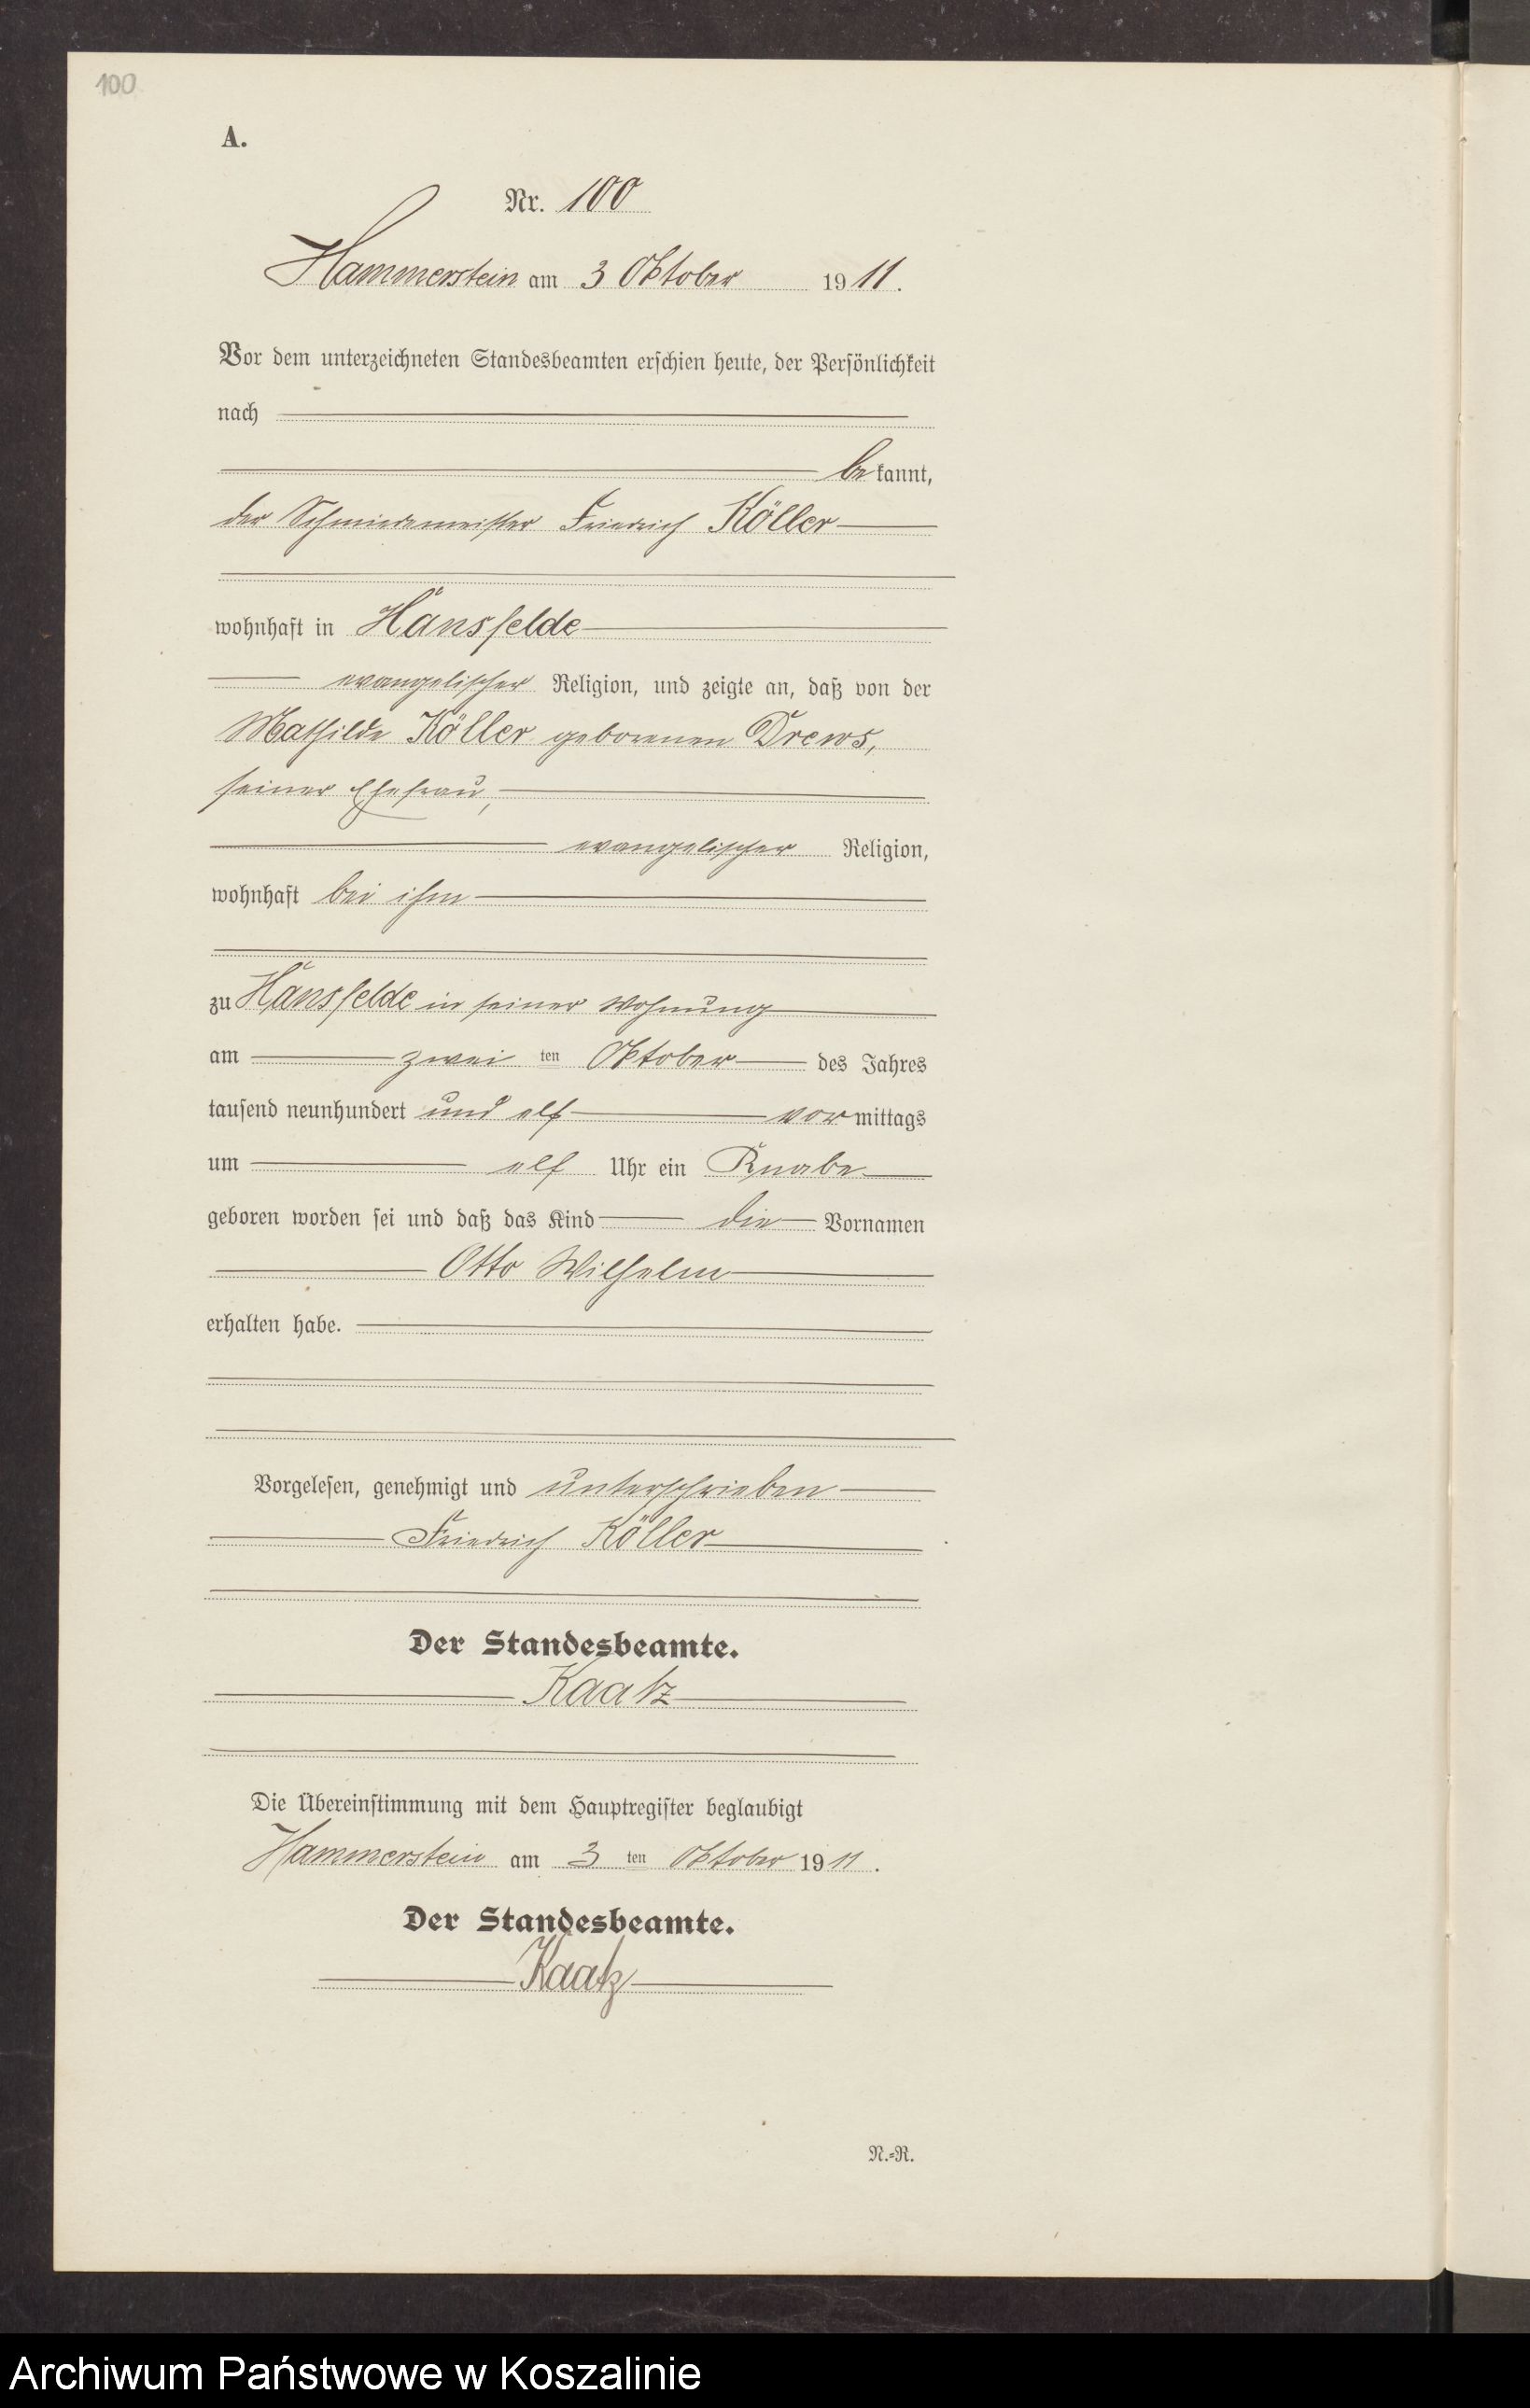 100
A.
Nr. 100
Hammerstein am 3 Oktober 1911.
Vor dem unterzeichneten Standesbeamten erschien heute, der Persönlichkeit
nach
bekannt,
der Schmiedemeister Friedrich Köller
wohnhaft in Hansfelde
evangelischer Religion, und zeigte an, daß von der
Mathilde Köller geborenen Drews,
seiner Ehefrau,
evangelischer Religion,
wohnhaft bei ihm
zu Hansfelde in seiner Wohnung
am zwei ten Oktober des Jahres
tausend neunhundert und elf vormittags
um elf Uhr ein Knabe
geboren worden sei und daß das Kind die Vornamen
Otto Wilhelm
erhalten habe.
Vorgelesen, genehmigt und unterschrieben
Friedrich Köller
Der Standesbeamte.
Kaatz
Die Übereinstimmung mit dem Hauptregister beglaubigt
Hammerstein am 3 ten Oktober 1911.
Der Standesbeamte.
Kaatz
N.=R.
Archiwum Państwowe w Koszalinie